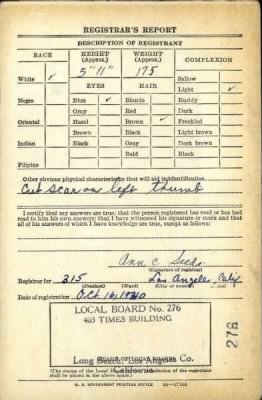 REGISTRAR'S REPORT
DESCRIPTION OF REGISTRANT
RACE HEIGHT (Approx.) WEIGHT (Approx.) COMPLEXION
5' 11" 175 Sallow
White ✓ EYES HAIR Light ✓
Negro Blue ✓ Blonde Ruddy
Gray Red Dark
Oriental Hazel Brown ✓ Freckled
Brown Black Light brown
Indian Black Gray Dark brown
Bald Black
Filipino
Other obvious physical characteristics that will aid in identification
Cut scar on left thumb
I certify that my answers are true; that the person registered has read or has had
read to him his own answers; that I have witnessed his signature or mark and that
all of his answers of which I have knowledge are true, except as follows:
Ann C.
(Signature of registrar)
Registrar for 315 Los Angeles Calif.
(Precinct) (Ward) (City or county) (State)
Date of registration Oct. 16, 1940
LOCAL BOARD No. 276
403 TIMES BUILDING
276
Long Beach, Los Angeles Co.
California
(The stamp of the Local Board
shall be placed in the above space.)
U. S. GOVERNMENT PRINTING OFFICE